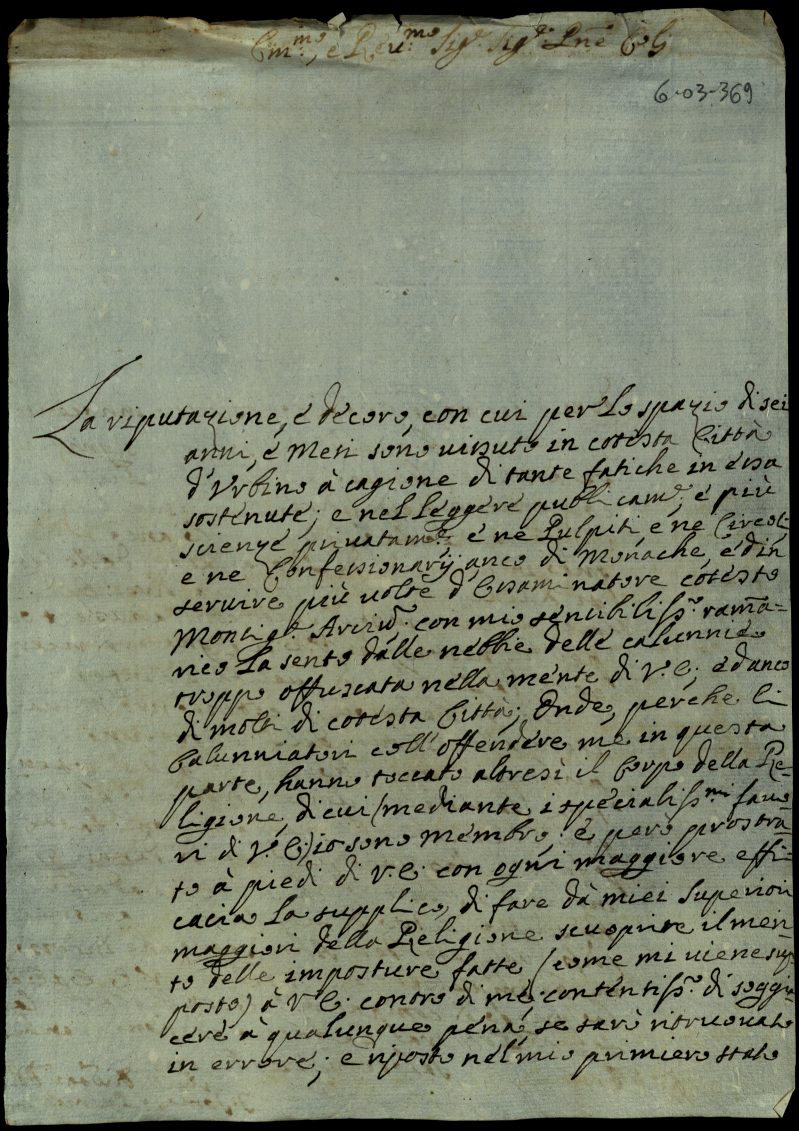 Em:mo, e Reu:mo Sig.r Sig.r Pne Col:
6-03-369
La riputazione, e decoro, con cui per lo spazio di sei
anni, e Mesi sono uissuto in cotesta Città
d'Vrbino à cagione di tante fatiche in essa
sostenute; e nel leggere publicam:e, e più
scienze priuatam:e e ne Pulpiti, e ne Circoli
e ne Confessionarij anco di Monache, e d'in
seruire più uolte d'Esaminatore cotesto
Monsig.r Arciu:o con mio sencibiliss:o ramma=
rico la sento dalle nebbie delle calunnie
troppo offuscata nella mente di V.E; ed anco
di molti di cotesta Città; Onde, perche li
Calunniatori coll'offendere me in questa
parte, hanno toccato altresì il Corpo della Re=
ligione, di cui (mediante i specialiss:mi fauo
ri di V.E:) io sono membro: e però prostra=
to à piedi di V.E. con ogni maggiore effi=
cacia la supplico, di fare dà miei Superiori
maggiori della Religione scuoprire il men
to delle imposture fatte (come mi uiene sup
posto) à V.E. contro di me, contentiss:o di soggia
cere à qualunque pena, se sarò ritruouato
in errore; e riposto nel mio primiero stato